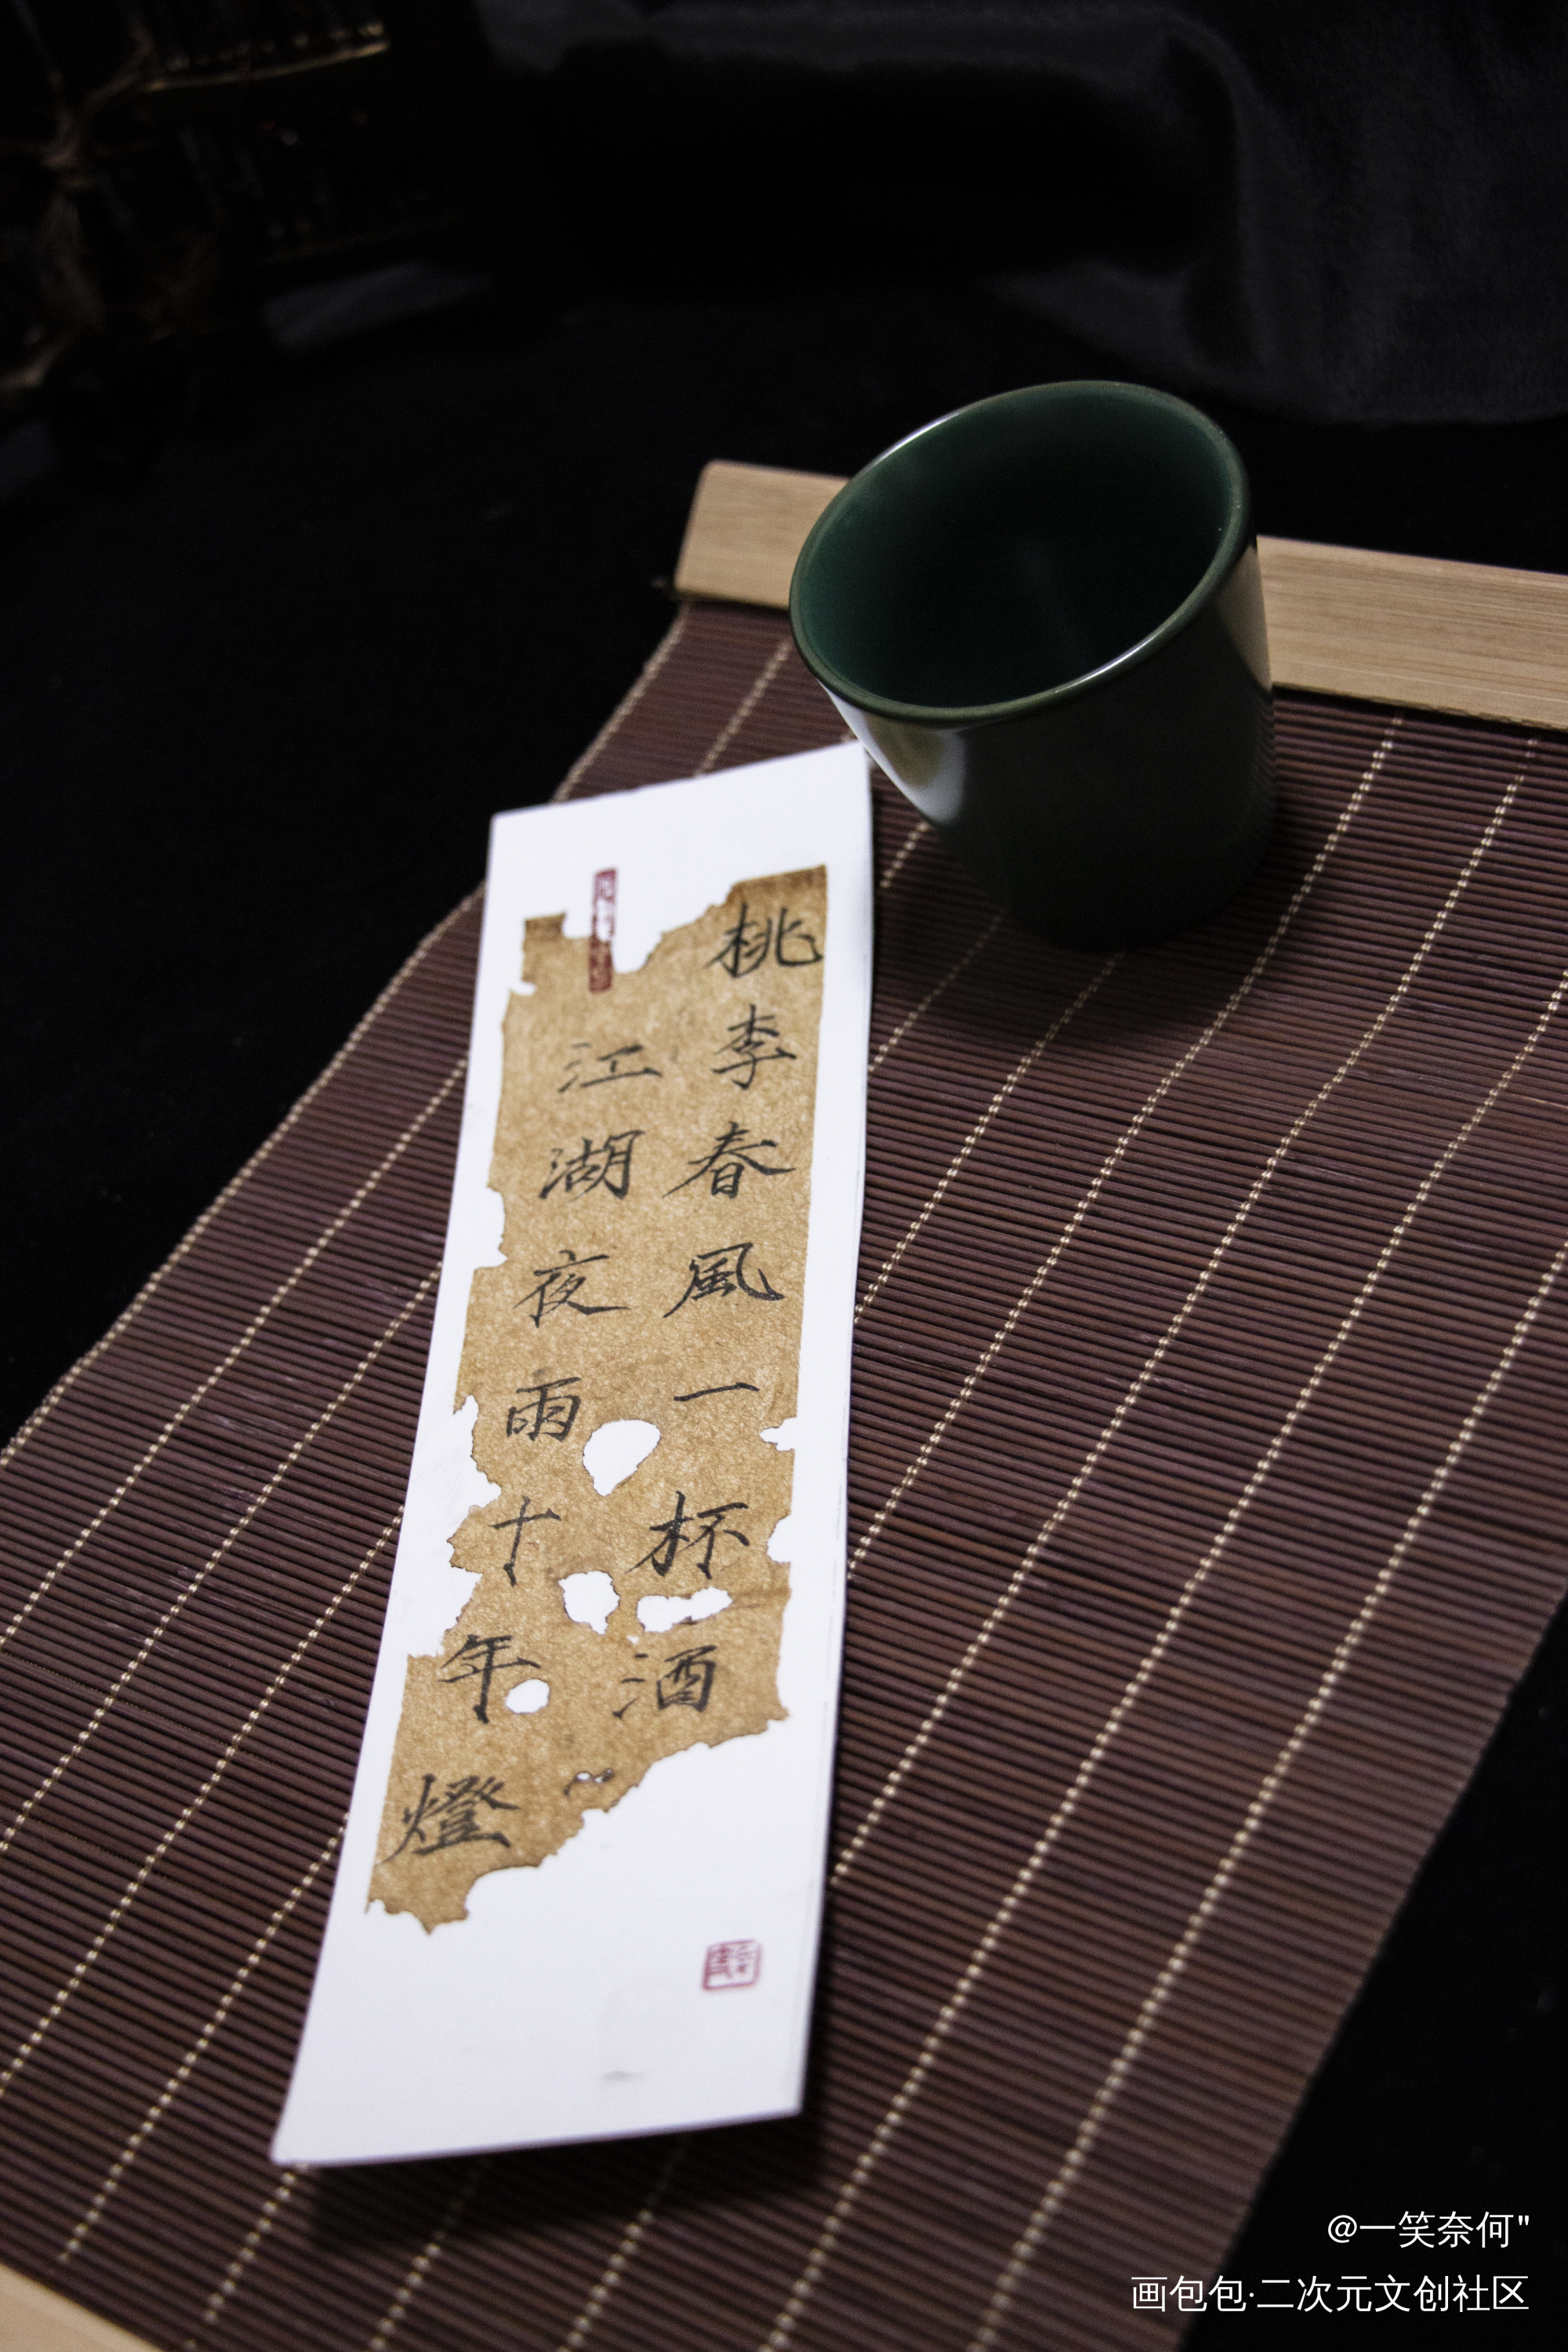 桃李春風一杯酒
江湖夜雨十年燈
@一笑奈何"
画包包·二次元文创社区